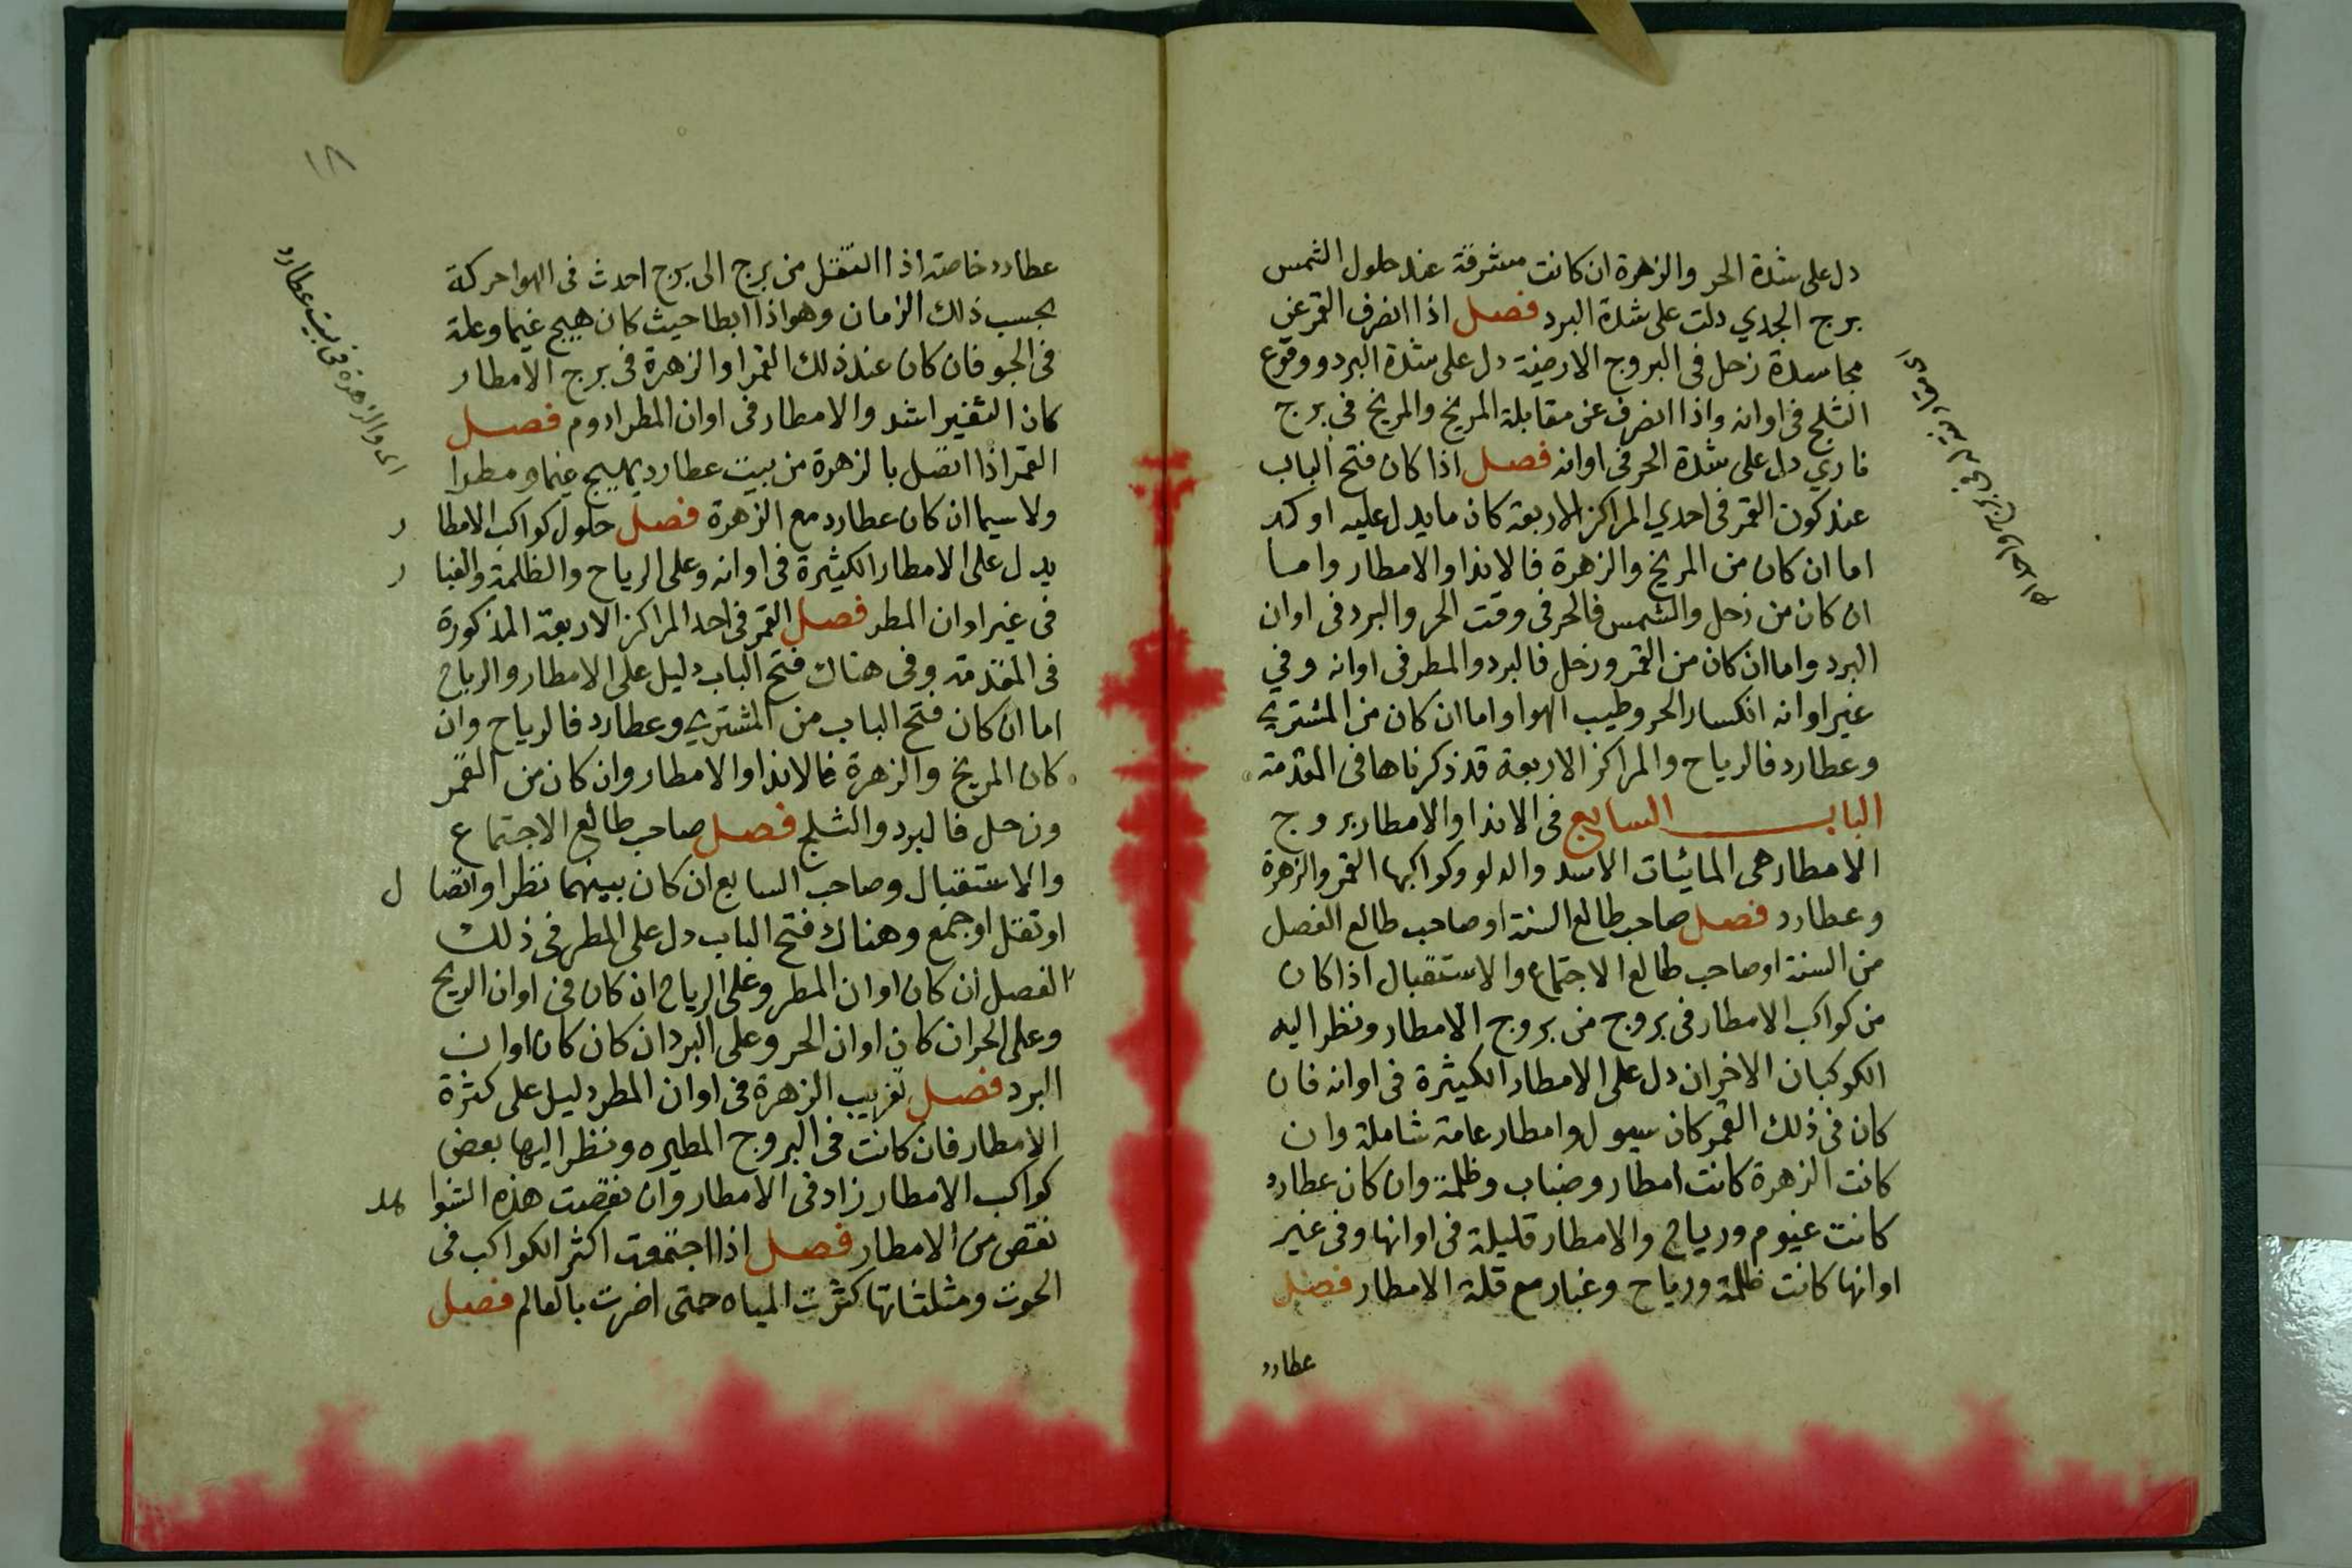 دل على شدة الحر والزهرة ان كانت مشرقة عند حلول الشمس
برج الجدي دلت على شدة البرد فصل اذا انصرف القمر عن
مجاسدة زحل في البروج الارضية دل على شدة البرد ووقوع
الثلج في اوانه واذا انصرف عن مقابلة المريخ والمريخ في برج
ناري دل على شدة الحر في اوانه فصل اذا كان فتح الباب
عند كون القمر في احدي المراكز الاربعة كان ما يدل عليه اوكد
اما ان كان من المريخ والزهرة فالاندا والامطار واما
ان كان من زحل والشمس فالحر في وقت الحر والبرد في اوان
البرد واما ان كان من القمر وزحل فالبرد والمطر في اوانه وفي
غير اوانه انكسار الحر وطيب الهوا واما ان كان من المشتري
وعطارد فالرياح والمراكز الاربعة قد ذكرناها في المقدمة
الباب السابع في الاندا والامطار بروج
الامطار هي المائيات الاسد والدلو وكواكبها القمر والزهرة
وعطارد فصل صاحب طالع السنة او صاحب طالع الفصل
من السنة او صاحب طالع الاجتماع والاستقبال اذا كان
من كواكب الامطار في بروج من بروج الامطار ونظر اليه
الكوكبان الاخران دل على الامطار الكثيرة في اوانه فان
كان في ذلك القمر كان سيول وامطار عامة شاملة وان
كانت الزهرة كانت امطار وضباب وظلمة وان كان عطارد
كانت غيوم ورياح والامطار قليلة في اوانها وفي غير
اوانها كانت ظلمة ورياح وغبار مع قلة الامطار فصل
عطارد
١٨
عطارد خاصة اذا انتقل من برج الى برج احدث في الهوا حركة
بحسب ذلك الزمان وهو اذا ابطا حيث كان هيج غيما وعلة
في الجو فان كان عند ذلك القمر او الزهرة في برج الامطار
كان التغير اشد والامطار في اوان المطر ادوم فصل
القمر اذا اتصل بالزهرة من بيت عطارد يهيج غيما ومطرا
اي والزهرة في بيت عطارد
ولا سيما ان كان عطارد مع الزهرة فصل حلول كواكب الامطا ر
يدل على الامطار الكثيرة في اوانه وعلى الرياح والظلمة والغبا ر
في غير اوان المطر فصل القمر في احد المراكز الاربعة المذكورة
في المقدمة وفي هناك فتح الباب دليل على الامطار والرياح
اما ان كان فتح الباب من المشتري وعطارد فالرياح وان
كان المريخ والزهرة فالاندا والامطار وان كان من القمر
وزحل فالبرد والثلج فصل صاحب طالع الاجتماع
والاستقبال وصاحب السابع ان كان بينهما نظر او اتصا ل
او نقل او جمع وهناك فتح الباب دل على المطر في ذلك
الفصل ان كان اوان المطر وعلى الرياح ان كان في اوان الريح
وعلى الحر ان كان اوان الحر وعلى البرد ان كان كان اوان
البرد فصل تغريب الزهرة في اوان المطر دليل على كثرة
الامطار فان كانت في البروج المطيره ونظر اليها بعض
كواكب الامطار زاد في الامطار وان نقصت هذه الشوا هد
نقص من الامطار فصل اذا اجتمعت اكثر الكواكب في
الحوت ومثلثاتها كثرت المياه حتى اضرت بالعالم فصل